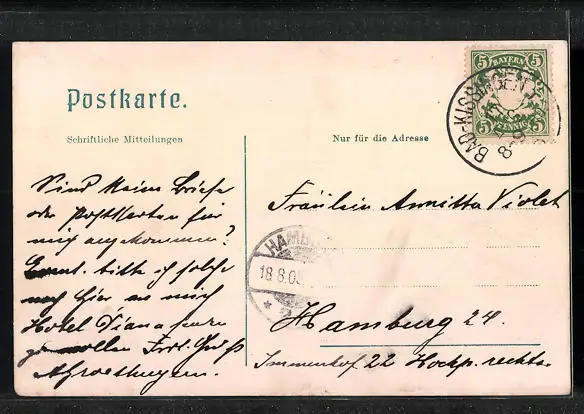 Postkarte.
Schriftliche Mitteilungen
Nur für die Adresse
5 BAYERN 5
5 PFENNIG 5
BAD-KISSINGEN
Sind keine Briefe
oder Postkarten für
mich angekommen?
Event. bitte ich solche
nach hier an mich
Hotel Diana
zu wollen Frdl. Gruß
Fräulein Annitta Violet
HAMBURG
18.8.05
Hamburg 24.
Immenhof 22 Hochp. rechts.